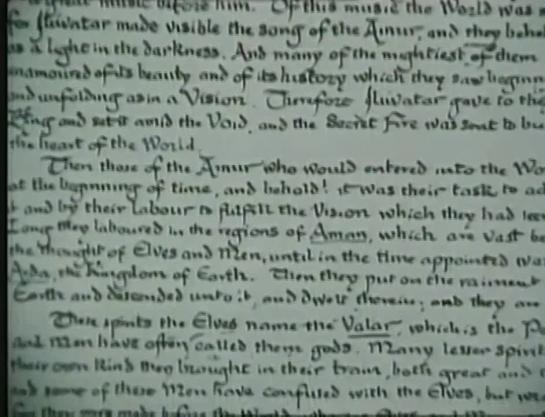 great music before him. Of this music the World was
for Iluvatar made visible the song of the Ainur, and they behel
as a light in the darkness. And many of the mightiest of them
enamoured of its beauty and of its history which they saw beginn
and unfolding as in a Vision. Therefore Iluvatar gave to the
Being and set it amid the Void, and the Secret Fire was sent to bu
the heart of the World.
Then those of the Ainur who would entered into the Wo
at the beginning of time, and behold! it was their task to ac
it and by their labour to fulfill the Vision which they had see
Long they laboured in the regions of Aman, which are vast be
the thought of Elves and Men, until in the time appointed wa
Arda, the Kingdom of Earth. Then they put on the raiment
Earth and descended unto it, and dwelt therein; and they are
These spirits the Elves name the Valar, which is the Po
and Men have often called them gods. Many lesser spirit
their own kind they brought in their train, both great and
and some of these Men have confused with the Elves, but w
for they were made before the World